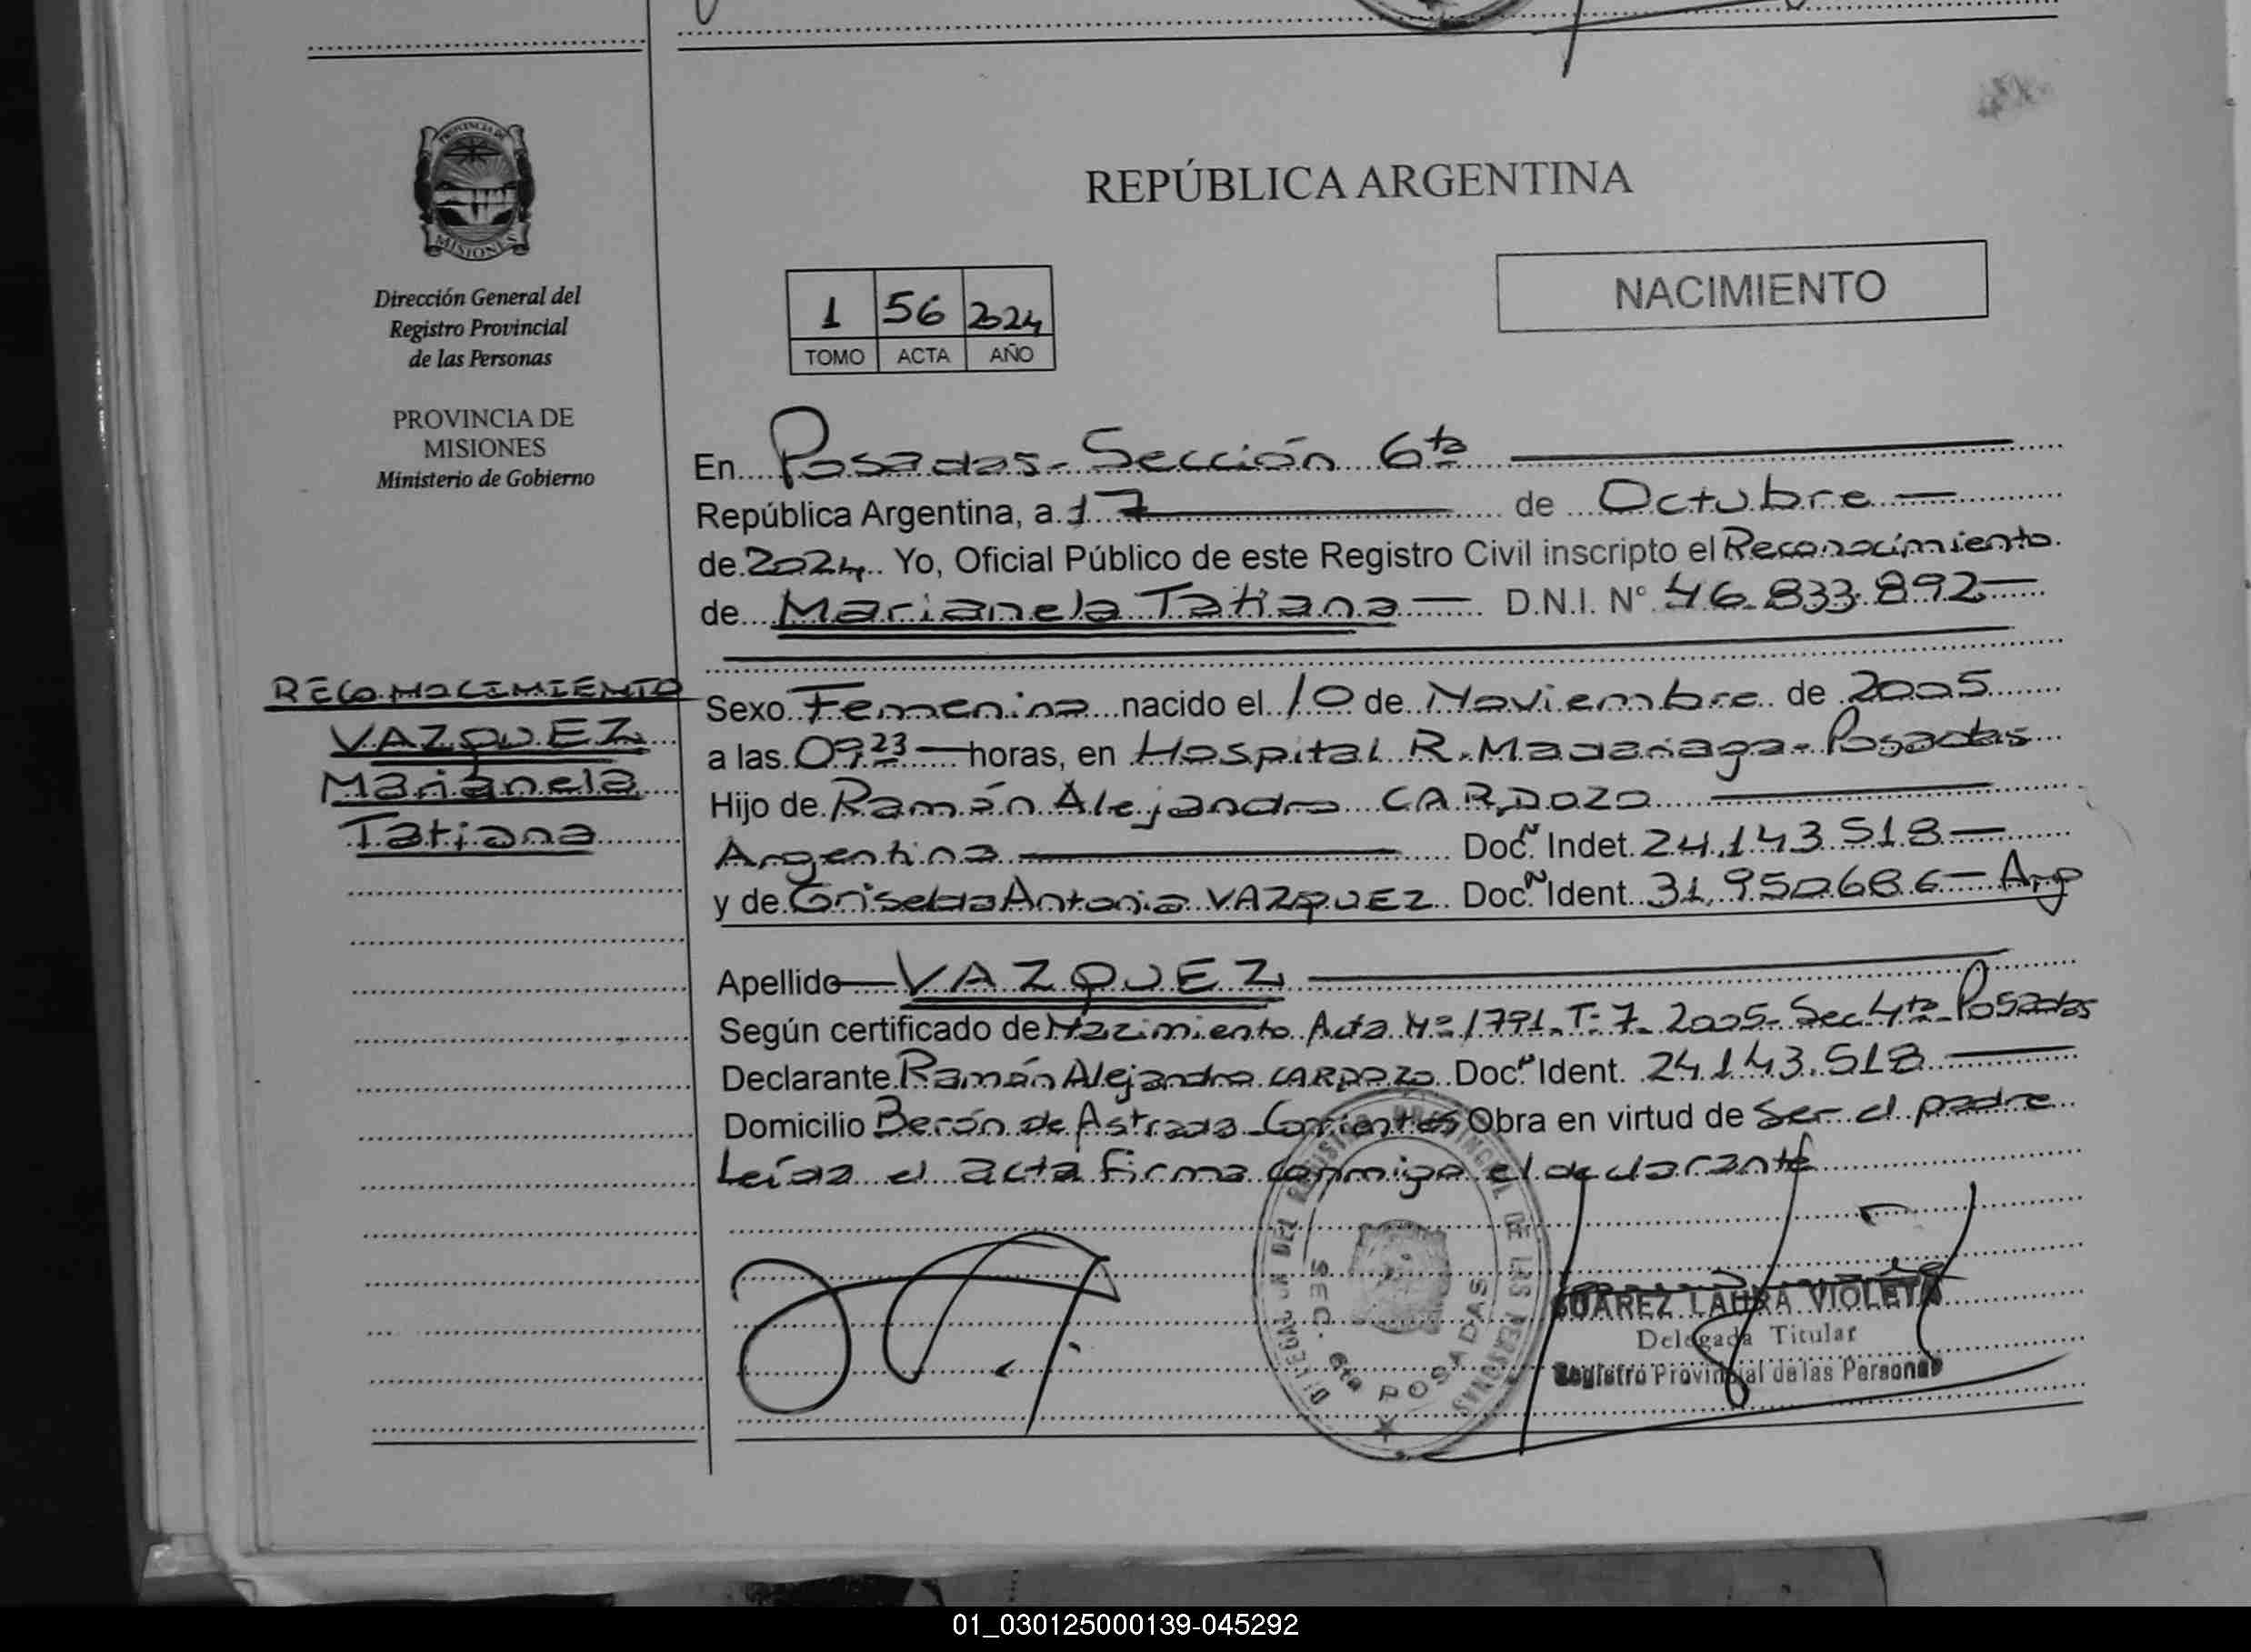 PROVINCIA DE
MISIONES
Dirección General del
Registro Provincial
de las Personas
PROVINCIA DE
MISIONES
Ministerio de Gobierno
RECONOCIMIENTO
VAZQUEZ
Marianela
Tatiana
REPÚBLICA ARGENTINA
NACIMIENTO
1 56 2024
TOMO ACTA AÑO
En Posadas - Sección 6ta
República Argentina, a 17 de Octubre
de 2024 Yo, Oficial Público de este Registro Civil inscripto el Reconocimiento
de Marianela Tatiana D.N.I. N° 46.833.892
Sexo Femenino nacido el 10 de Noviembre de 2005
a las 09,23 horas, en Hospital R. Madariaga - Posadas
Hijo de Ramón Alejandro CARDOZO
Argentina Doc. N Indet. 24.143.518
y de Griselda Antonia VAZQUEZ Doc. N Ident. 31.950.686 - Arg
Apellido VAZQUEZ
Según certificado de Nacimiento Acta Nº 1791 - T-7 - 2005 - Sec 4ta - Posadas
Declarante Ramón Alejandro CARDOZO Doc. N Ident. 24.143.518
Domicilio Berón de Astrada - Corrientes Obra en virtud de Ser el padre
Leída el acta firma conmigo el declarante
REGISTRO PROVINCIAL DE LAS PERSONAS
SEC. 6ta POSADAS
SUAREZ LAURA VIOLETA
Delegada Titular
Registro Provincial de las Personas
01_030125000139-045292